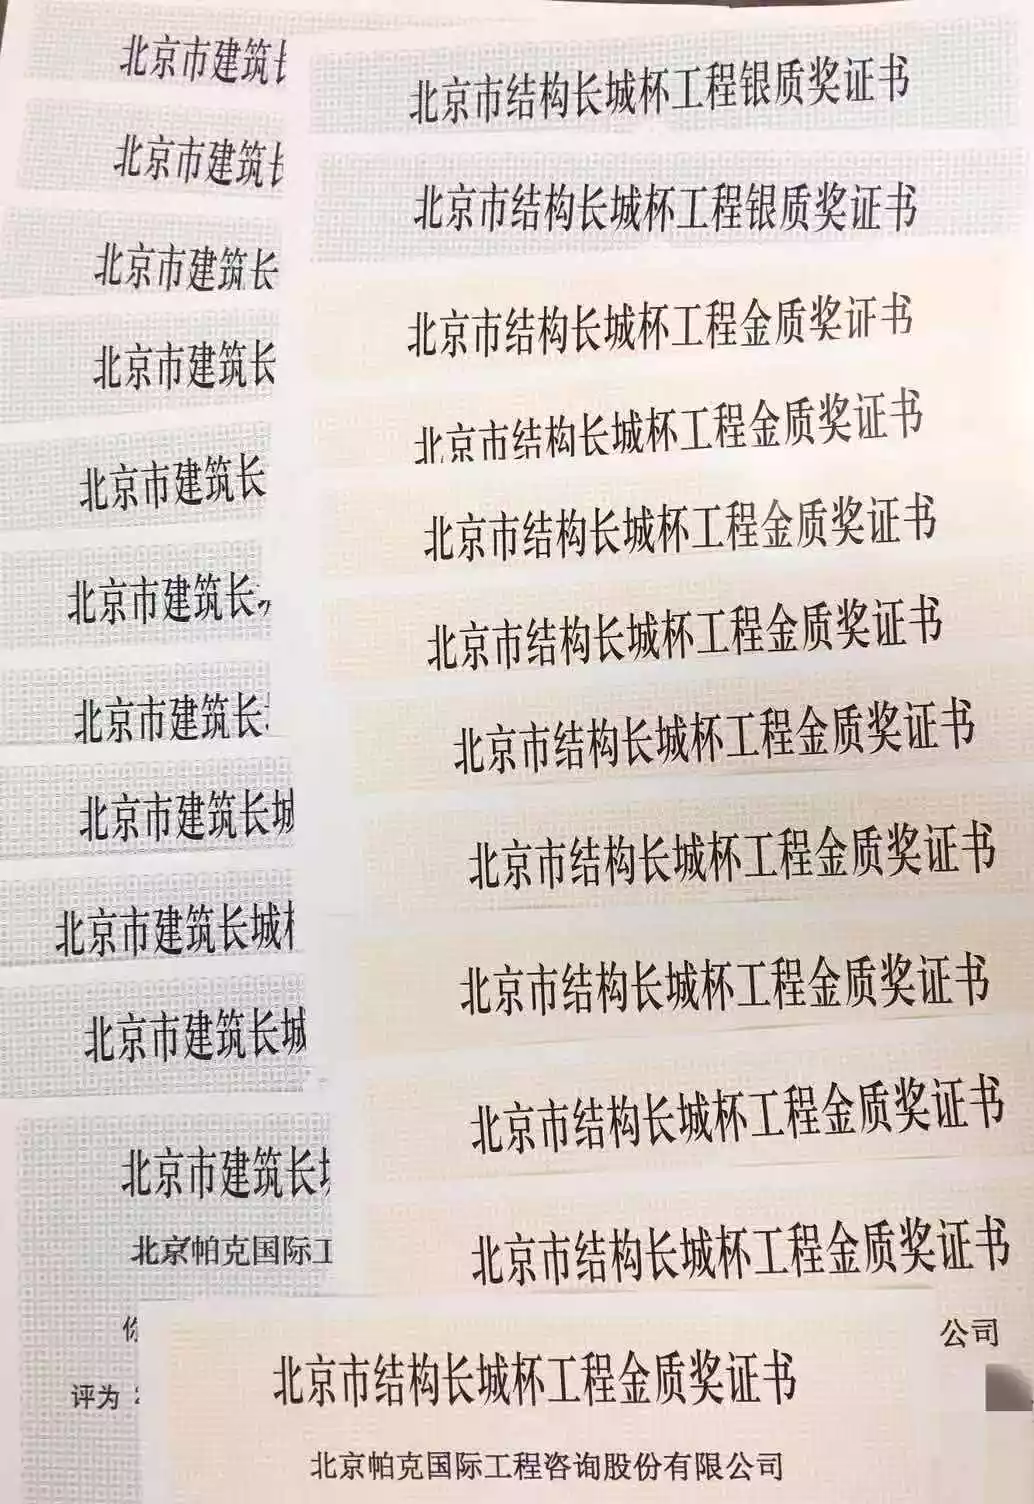 北京市建筑长
北京市建筑长
北京市建筑长
北京市建筑长
北京市建筑长
北京市建筑长
北京市建筑长
北京市建筑长城
北京市建筑长城
北京市建筑长城
北京市建筑长
北京帕克国际工
评为
北京市结构长城杯工程银质奖证书
北京市结构长城杯工程银质奖证书
北京市结构长城杯工程金质奖证书
北京市结构长城杯工程金质奖证书
北京市结构长城杯工程金质奖证书
北京市结构长城杯工程金质奖证书
北京市结构长城杯工程金质奖证书
北京市结构长城杯工程金质奖证书
北京市结构长城杯工程金质奖证书
北京市结构长城杯工程金质奖证书
北京市结构长城杯工程金质奖证书
公司
北京市结构长城杯工程金质奖证书
北京帕克国际工程咨询股份有限公司